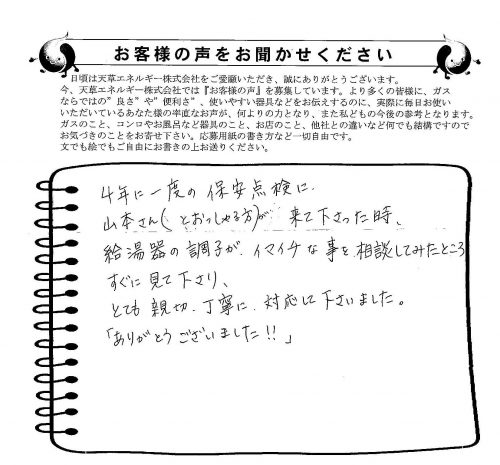 お客様の声をお聞かせください
日頃は天草エネルギー株式会社をご愛顧いただき、誠にありがとうございます。
今、天草エネルギー株式会社では『お客様の声』を募集しています。より多くの皆様に、ガス
ならではの”良さ”や”便利さ”、使いやすい器具などをお伝えするのに、実際に毎日お使い
いただいているあなた様の率直なお声が、何よりの力となり、また私どもの今後の参考となります。
ガスのこと、コンロやお風呂など器具のこと、お店のこと、他社との違いなど何でも結構ですので
お気づきのことをお寄せ下さい。応募用紙の書き方など一切自由です。
文でも絵でもご自由にお書きの上お送りください。
4年に一度の保安点検に、
山本さん(とおっしゃる方)が 来て下さった時、
給湯器の調子が、イマイチな事を相談してみたところ
すぐに見て下さり、
とても親切、丁寧に、対応して下さいました。
「ありがとうございました!!」